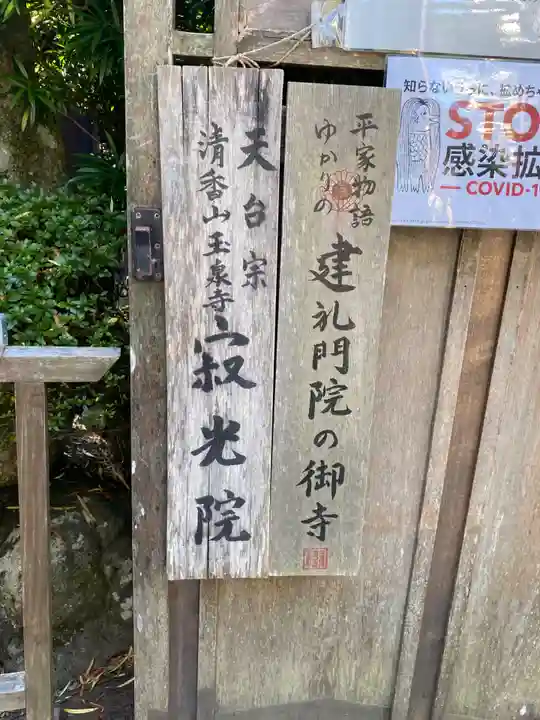 平家物語
ゆかりの
建礼門院の御寺
天台宗
清香山玉泉寺
寂光院
知らないうちに、拡めちゃ
STO
感染拡
COVID-1